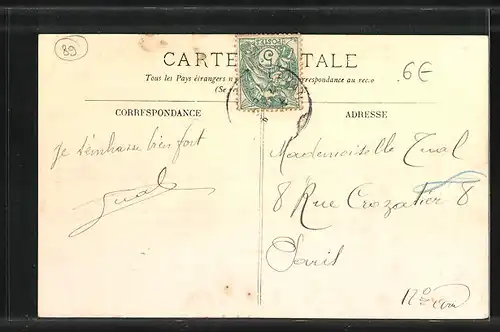 89
CARTE POSTALE
6€
Tous les Pays étrangers n correspondance au recto
(Se re
CORRESPONDANCE
ADRESSE
Je t'embrasse bien fort
Tual
Mademoiselle Tual
8 Rue Crozatier 8
Paris
12e arr